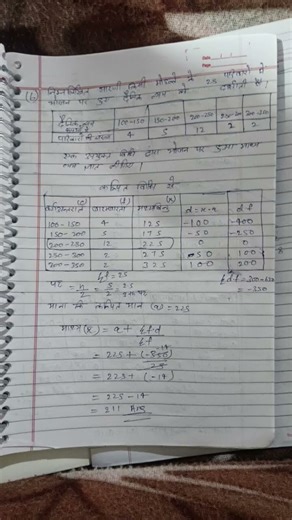 (6) निम्नलिखित सारणी किसी मोहल्ले के 25 परिवारों में
भोजन पर हुए दैनिक व्यय को दर्शाती है।
दैनिक व्यय 100-150 150-200 200-250 250-300 300-350
परिवारों की संख्या 4 5 12 2 2
एक उपयुक्त विधि द्वारा भोजन पर हुआ माध्य
व्यय ज्ञात कीजिए।
कल्पित विधि से
(c) (f) (x)
वर्ग अन्तराल बारम्बारता मध्य बिन्दु d = x - a d f
100-150 4 125 -100 -400
150-200 5 175 -50 -250
200-250 12 225 0 0
250-300 2 275 50 100
300-350 2 325 100 200
Σf = 25
माना की कल्पित मान (a) = 225
माध्य (x̄) = a + Σfd
Σf
= 225 + (-350)
25
= 225 + (-14)
= 225 - 14
= 211 Ans